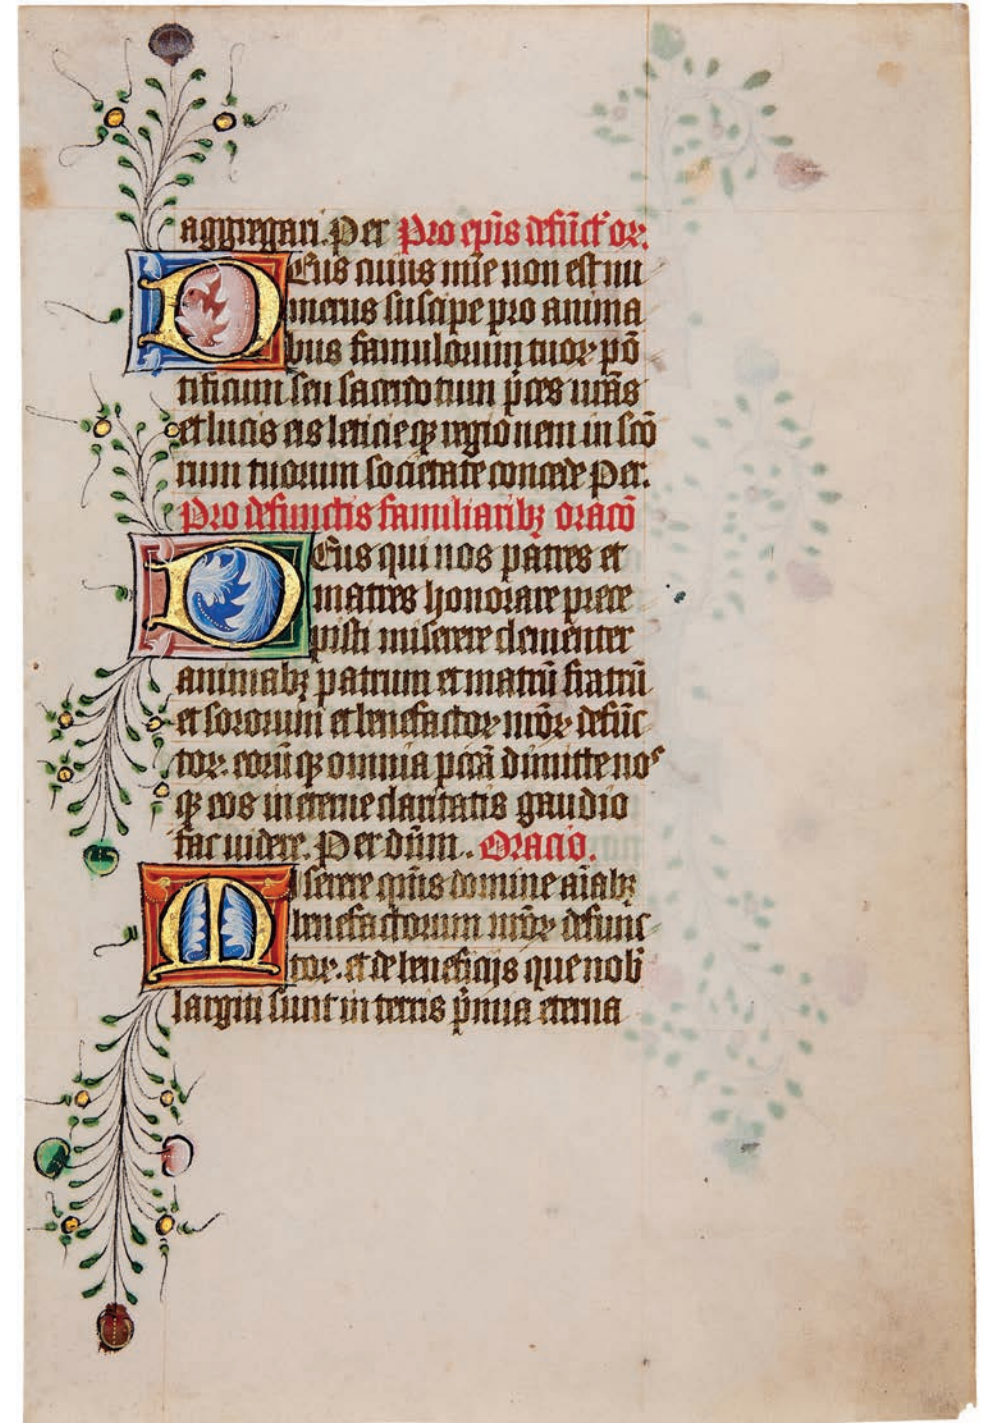 aggregari. Per Pro ep̄is defūct̄ or.
Deus cuius mīe non est nu
merus suscipe pro anima
bus famulorum tuoꝝ pō
tificum seu sacerdotum p̄ces nr̄as
et lucis eis leticieqꝫ regionem in scō
rum tuorum societate concede Per.
Pro defunctis familiaribꝫ oracō
Deus qui nos patres et
matres honorare prece
pisti miserere clementer
animabꝫ patrum et matrū fratrū
et sororum et benefactoꝝ nr̄oꝝ defūc
toꝝ. eorūqꝫ omnia pctā dimitte nos
qꝫ eos in eterne claritatis gaudio
fac uidere. Per dn̄m. Oracio.
Miserere qm̄s domine aīabꝫ
benefactorum nr̄oꝝ defunc
toꝝ. et de beneficijs que nob̄
largiti sunt in terris p̄mia eterna